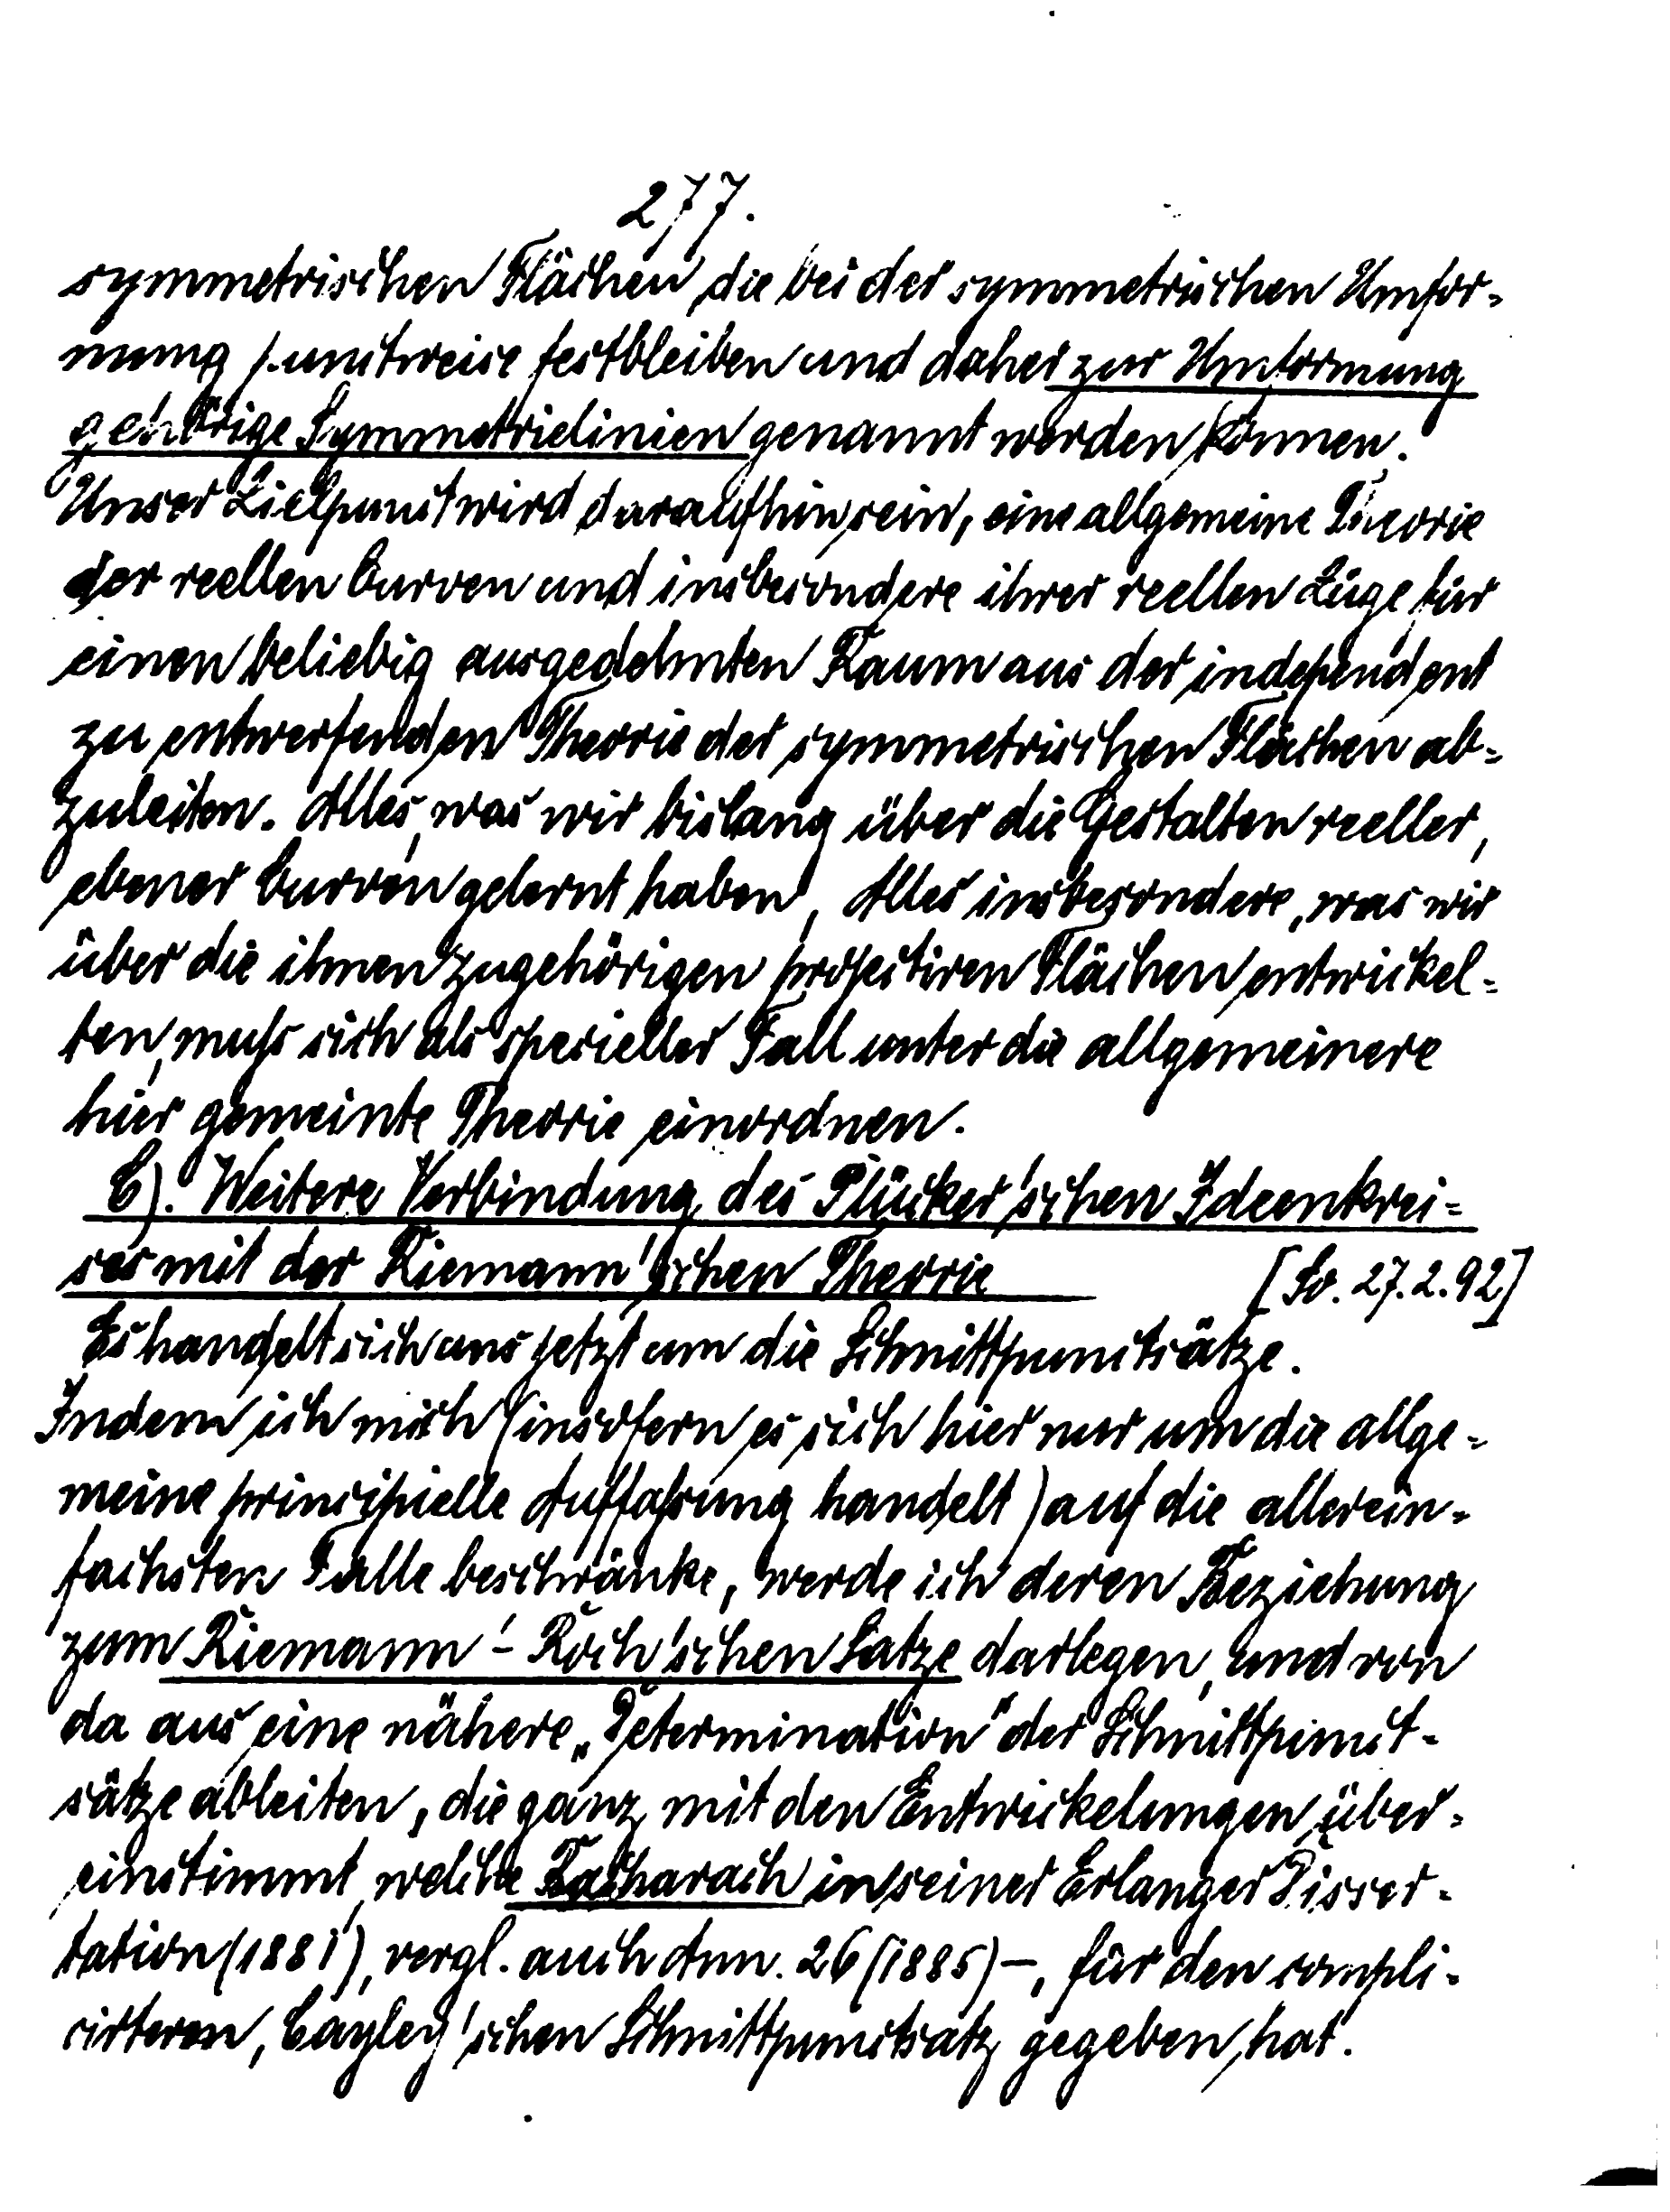 277.
symmetrischen Flächen, die bei der symmetrischen Umfor-
mung punctweise festbleiben und daher zur Umformung
gehörige Symmetrielinien genannt werden können.
Unser Zielpunct wird daraufhin sein, eine allgemeine Theorie
der reellen Curven und insbesondere ihrer reellen Züge für
einen beliebig ausgedehnten Raum aus der independent
zu entwerfenden Theorie der symmetrischen Flächen ab-
zuleiten. Alles, was wir bislang über die Gestalten reeller,
ebener Curven gelernt haben, Alles insbesondere, was wir
über die ihnen zugehörigen projectiven Flächen entwickel-
ten, muß sich als specieller Fall unter die allgemeinere
hier gemeinte Theorie einordnen.
C). Weitere Verbindung des Plücker'schen Ideenkrei-
ses mit der Riemann'schen Theorie
[So. 27.2.92]
Es handelt sich uns jetzt um die Schnittpunctsätze.
Indem ich mich (insofern es sich hier nur um die allge-
meine principielle Auffaßung handelt) auf die allerein-
fachsten Fälle beschränke, werde ich deren Beziehung
zum Riemann'-Roch'schen Satze darlegen, und von
da aus eine nähere „Determination" der Schnittpunct-
sätze ableiten, die ganz mit den Entwickelungen über-
einstimmt, welche Bacharach in seiner Erlanger Disser-
tation (1881), vergl. auch Ann. 26 (1885) -, für den compli-
cirteren, Cayley'schen Schnittpunctsatz gegeben hat.